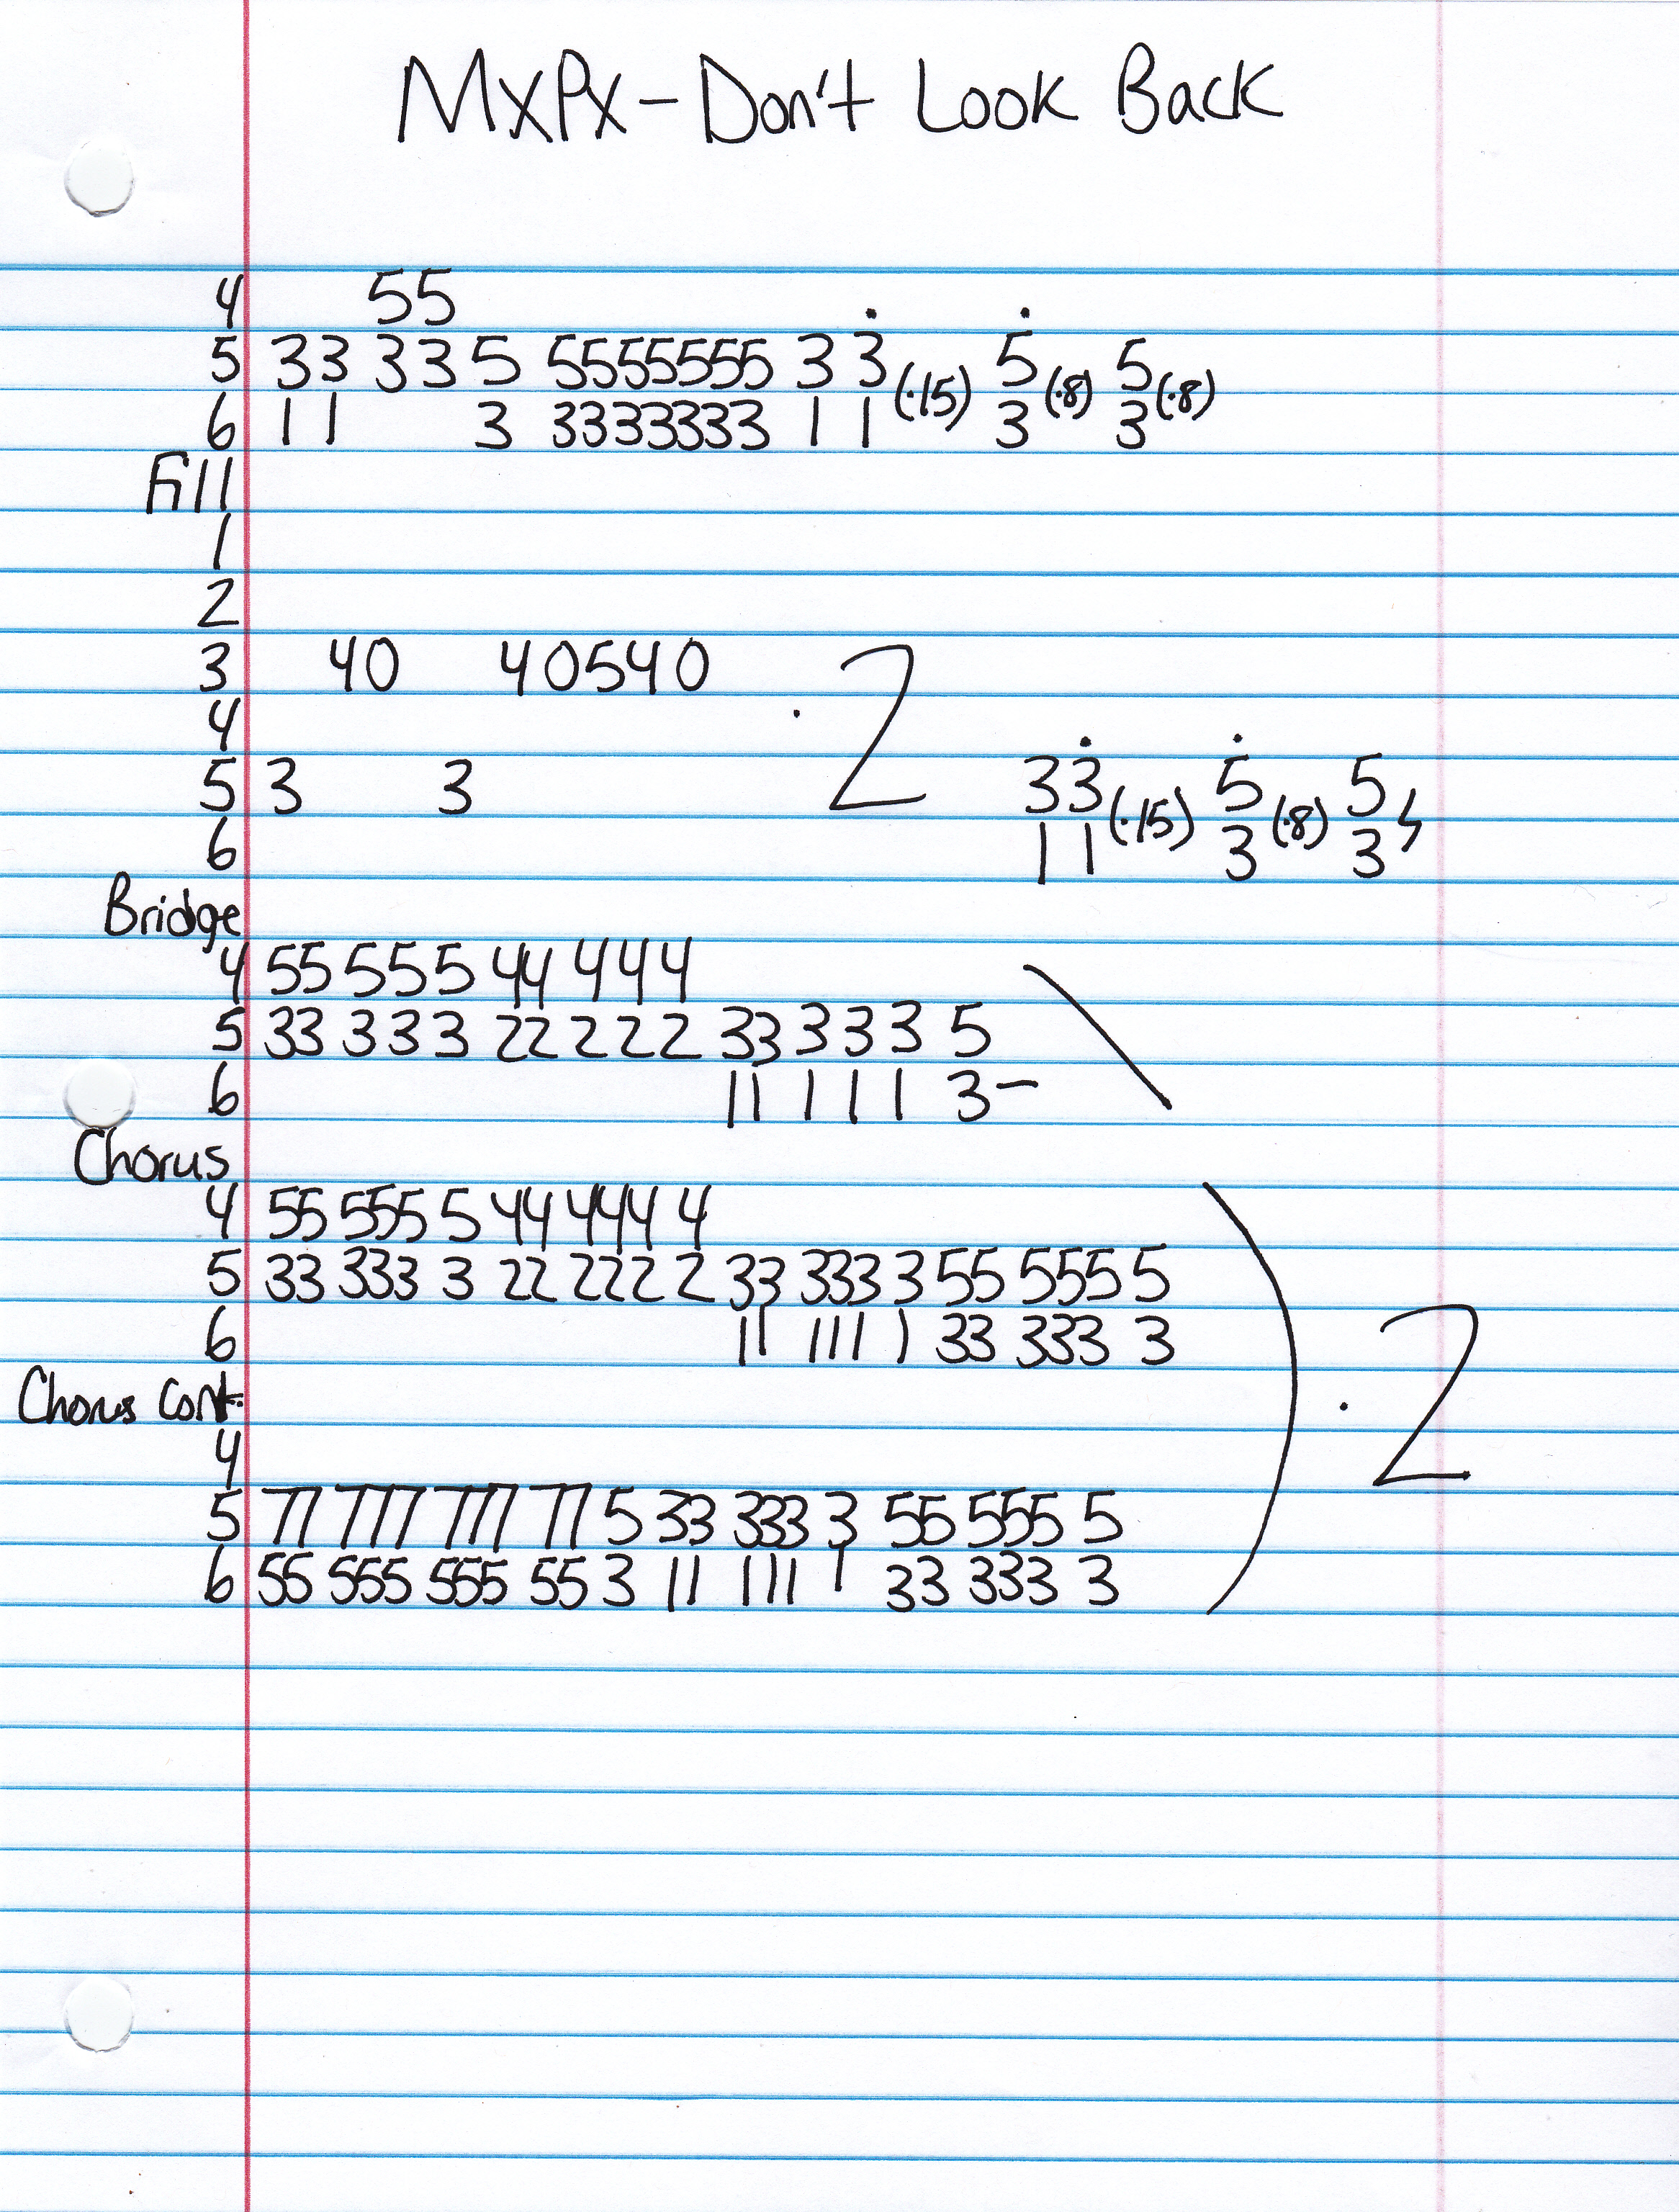 MXPX - Don't Look Back
4 55
5 33 33 5 5555555 3 3 (·15) 5 (·8) 5 (·8)
6 1 1 3 3333333 1 1 3 3
Fill
1
2
3 40 40540 · 2
4
5 3 3 3 3 (·15) 5 (·8) 5
6 1 1 3 3
Bridge
4 55 5 5 5 44 4 4 4
5 33 3 3 3 22 2 2 2 33 3 3 3 5
6 11 1 1 1 3 –
Chorus
4 55 555 5 44 444 4
5 33 333 3 22 222 2 33 333 3 55 555 5
6 11 111 1 33 333 3
Chorus Cont. · 2
4
5 77 777 777 77 5 33 333 3 55 555 5
6 55 555 555 55 3 11 111 1 33 333 3